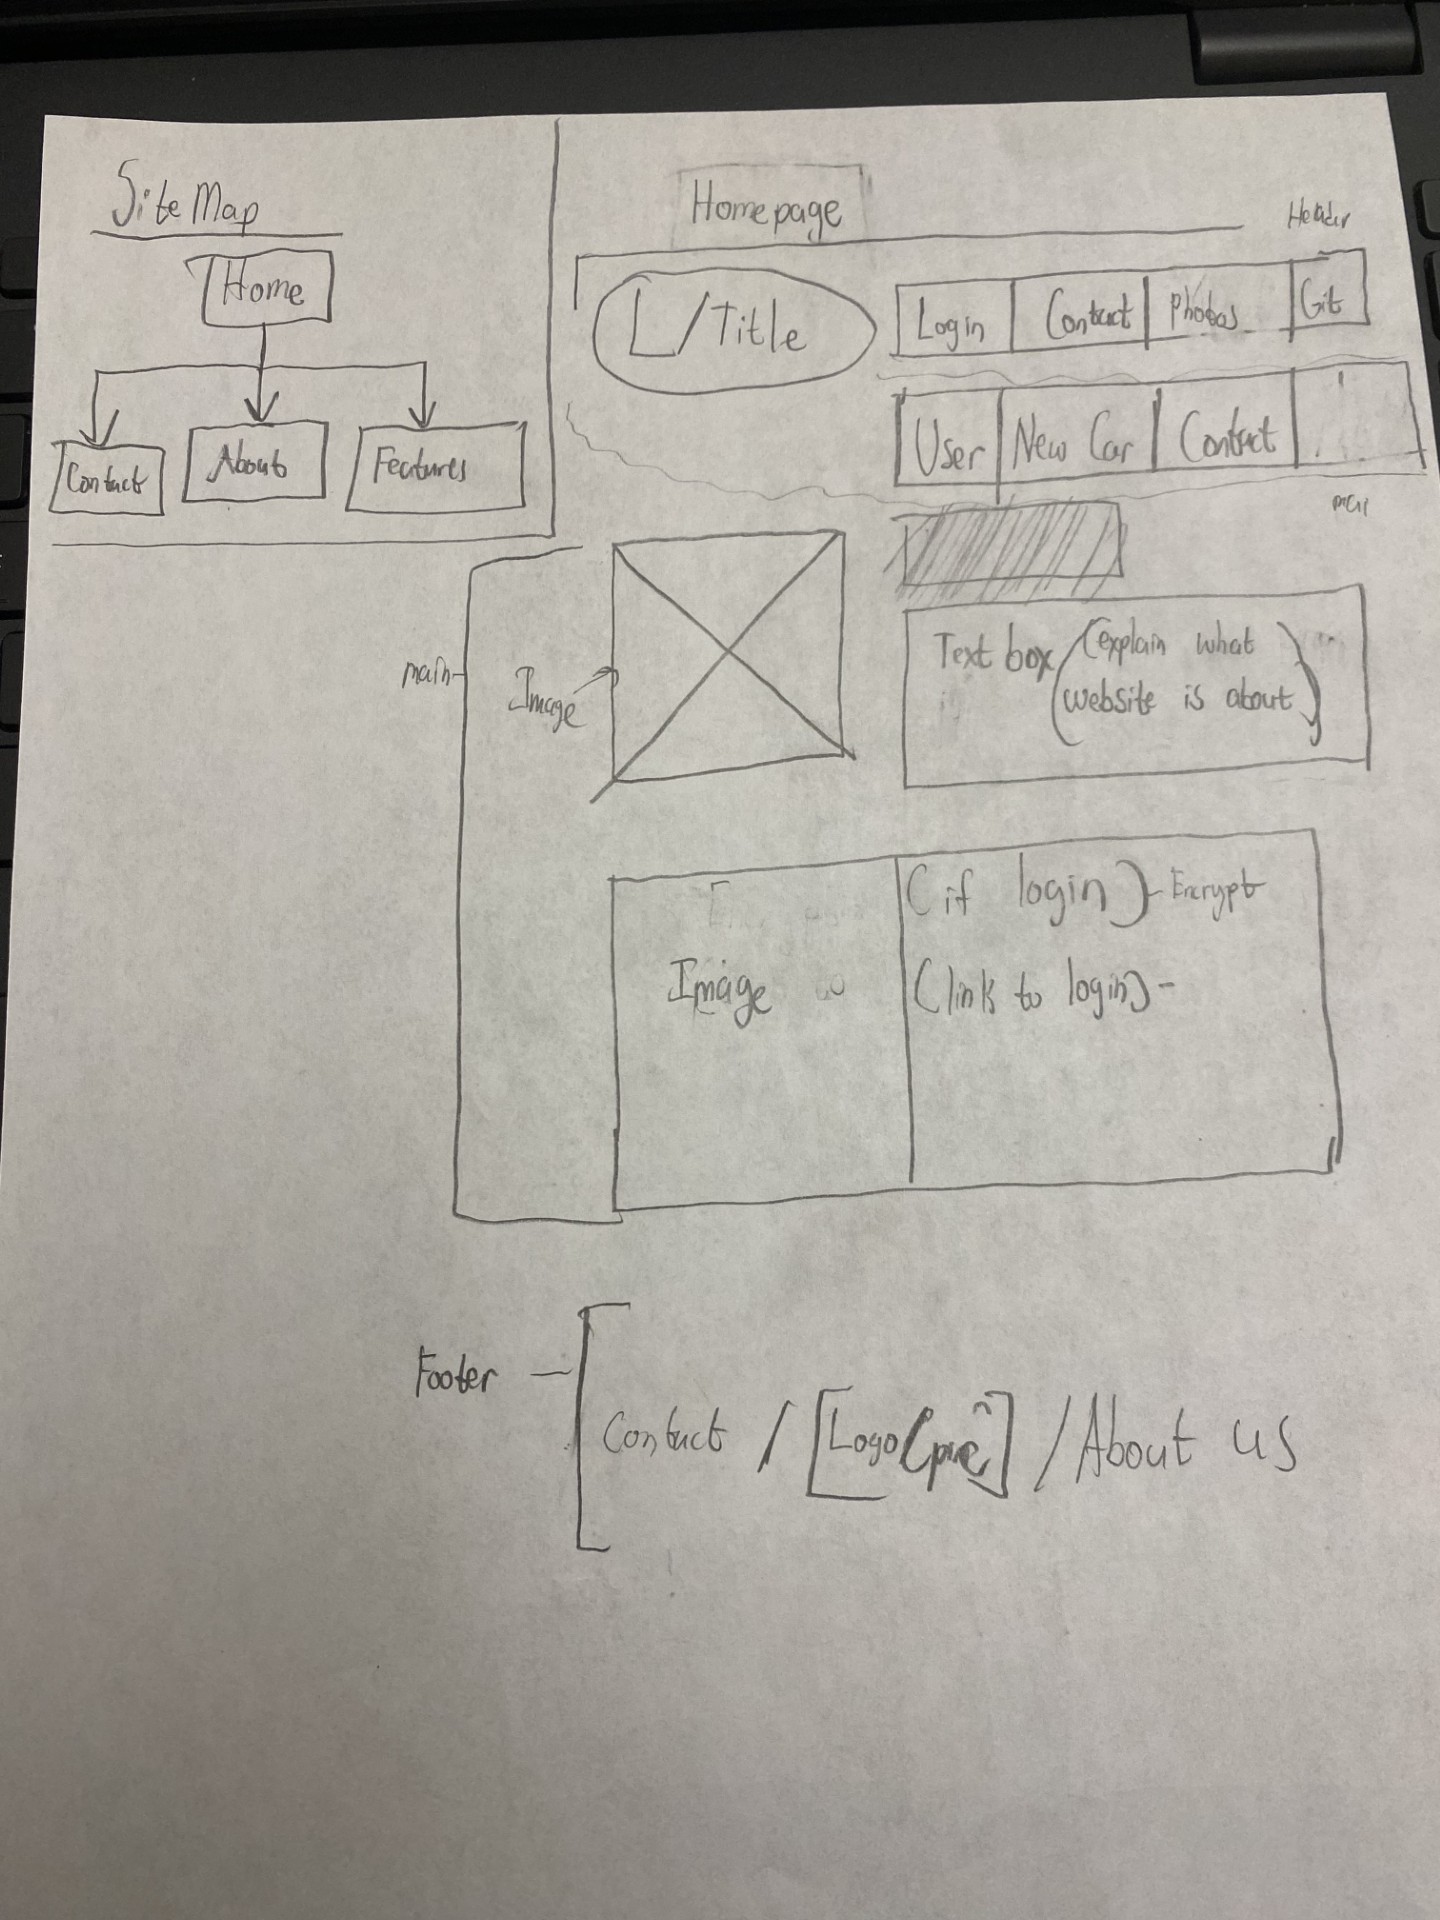 Site Map
Home
Contact
About
Features
Homepage
Header
L/Title
Login
Contact
Photos
Git
User
New Car
Contact
main
Image
Text box (explain what
website is about)
Image
(if login) - Encrypt
(link to login) -
Footer -
Contact / [Logo ] / About us